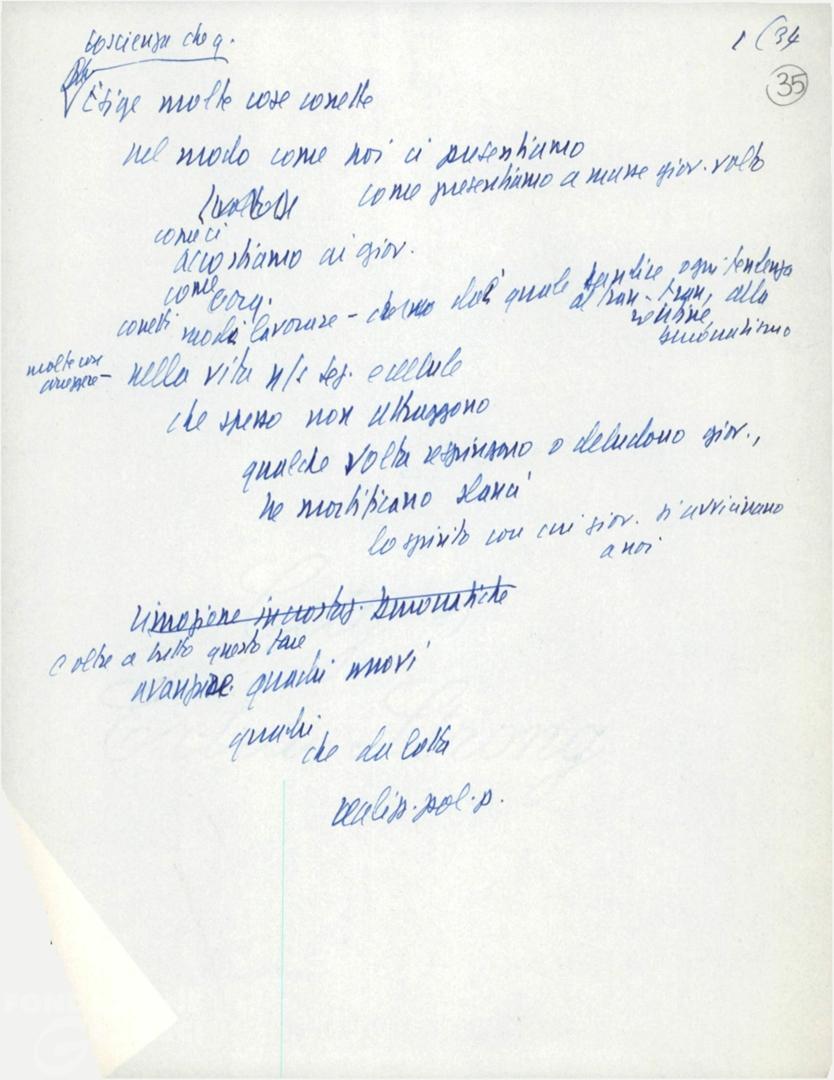 Coscienza che q.
1 (34
35
Esige molte cose corrette
nel modo come noi ci presentiamo
come presentiamo a masse giov. volto
come ci
accostiamo ai giov.
come
corretti modi lavorare – che quale ogni tendenza
al tran-tran, alla
routine,
burocratismo
molte cose
correggere –
nella vita n/s sez. e cellule
che spesso non attraggono
qualche volta respingono o deludono giov.,
ne mortificano slanci
lo spirito con cui giov. si avvicinano
a noi
rimozione incrostaz. burocratiche
E oltre a tutto questo fare
avanzare quadri nuovi
quadri
che da lotta
realizz. pol. p.